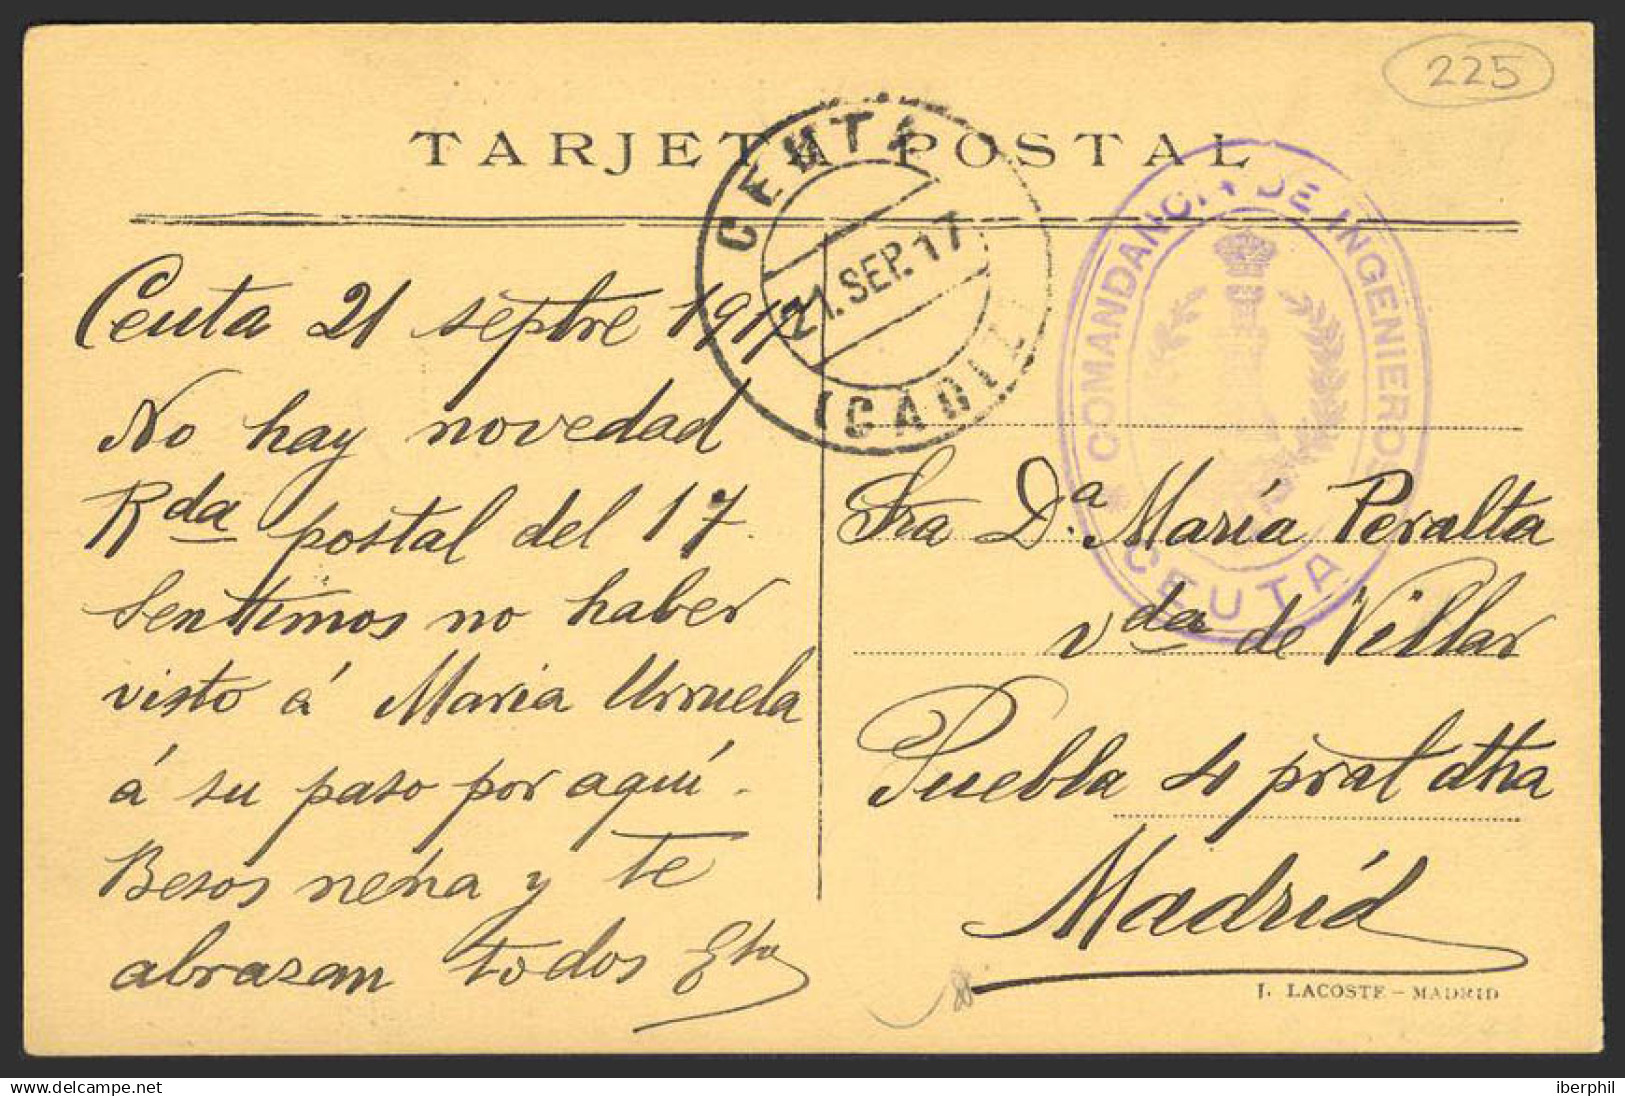 225
TARJETA POSTAL
CEUTA
21.SEP.17
(CADIZ)
COMANDANCIA DE INGENIEROS
* CEUTA
Ceuta 21 septre 1917
No hay novedad
Rda postal del 17.
Sentimos no haber
visto á Maria Urruela
á su paso por aquí.
Besos nena y te
abrazan todos
Sra D.ª María Peralta
vda de Villar
Puebla 4 pral dtha
Madrid
J. LACOSTE - MADRID
iberphil